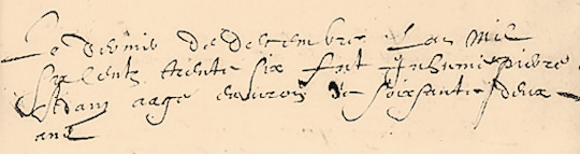 Le de decembre Lan mil
Six centz trente six fut Inhumé pierre
aage environ de soixante deux
ans